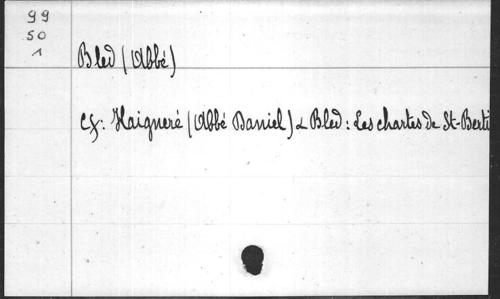 99
50
1
Bled (Abbé)
Cf: Haigneré (Abbé Daniel) & Bled : Les chartes de St-Berti